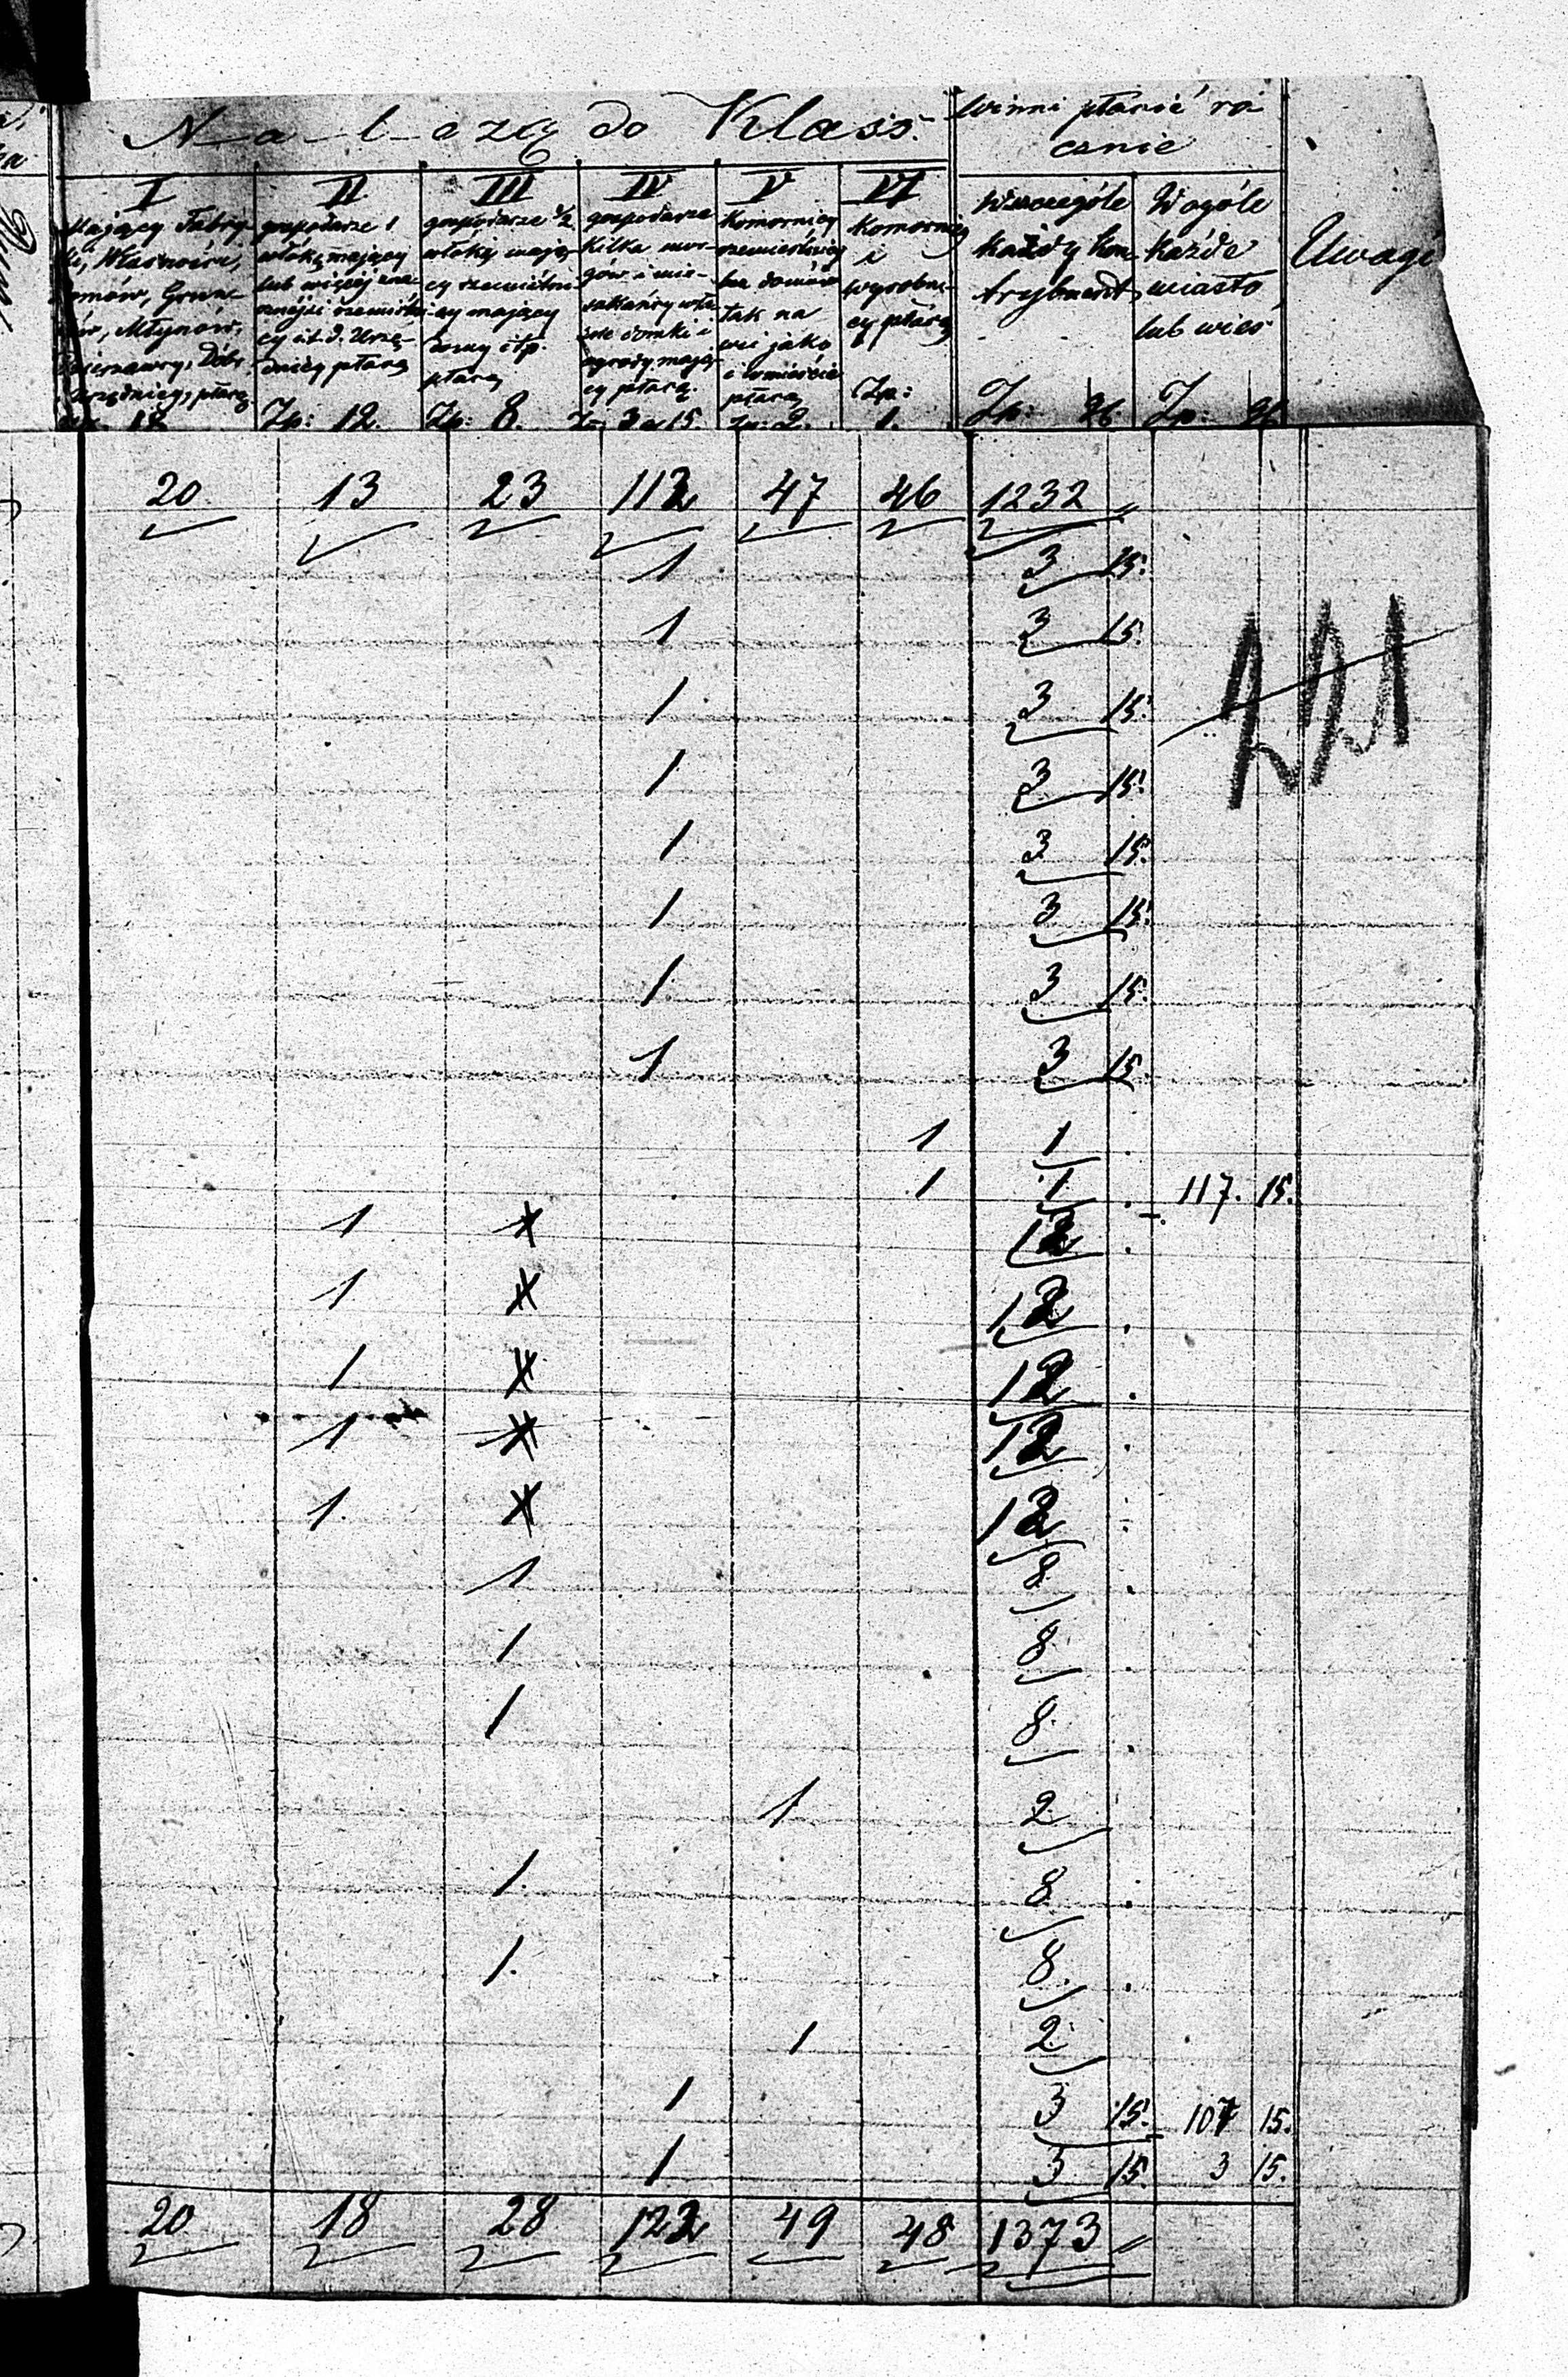 Należą do Klass.
winni płacić ro-
cznie
I
Mający Fabry-
ki, Właściciele,
Domów, Grun-
tów, Młynów,
Dzierżawcy, Dóbr
Urzędnicy, płacą
18
II
gospodarze 1
włókę mający
lub więcej
cy i t. d. Urzę-
dnicy płacą
Zp: 12.
III
gospodarze ½
włóki mają-
cy rzemieślni-
cy mający
domy itp.
płacą
Zp: 8.
IV
gospodarze
kilka mor-
gów i mie-
szkańcy wła-
sne domki i
ogrody mają-
cy płacą.
Zp 3 g 15.
V
Komornicy
rzemieślnicy
bez domów
tak na
wsi jako
i w mieście
płacą
Zp: 2.
VI
Komornicy
i
wyrobni-
cy płacą
Zp:
1.
Wszczególe
każdy Kon-
trybuent
Zp: gr
Wogóle
każde
miasto
lub wieś
Zp: gr
Uwagi
20 13 23 112 47 46 1232 "
1 3 15.
1 3 15.
1 3 15.
1 3 15.
1 3 15.
1 3 15.
1 3 15.
1 3 15.
1 1 .
1 1 . 117. 15.
1 12 .
1 12 .
1 12 .
1 12 .
1 12 .
1 8 .
1 8 .
1 8 .
1 2
1 8 .
1 8 .
1 2
1 3 15. 107 15.
1 3 15 3 15.
20 18 28 122 49 48 1373 "
221